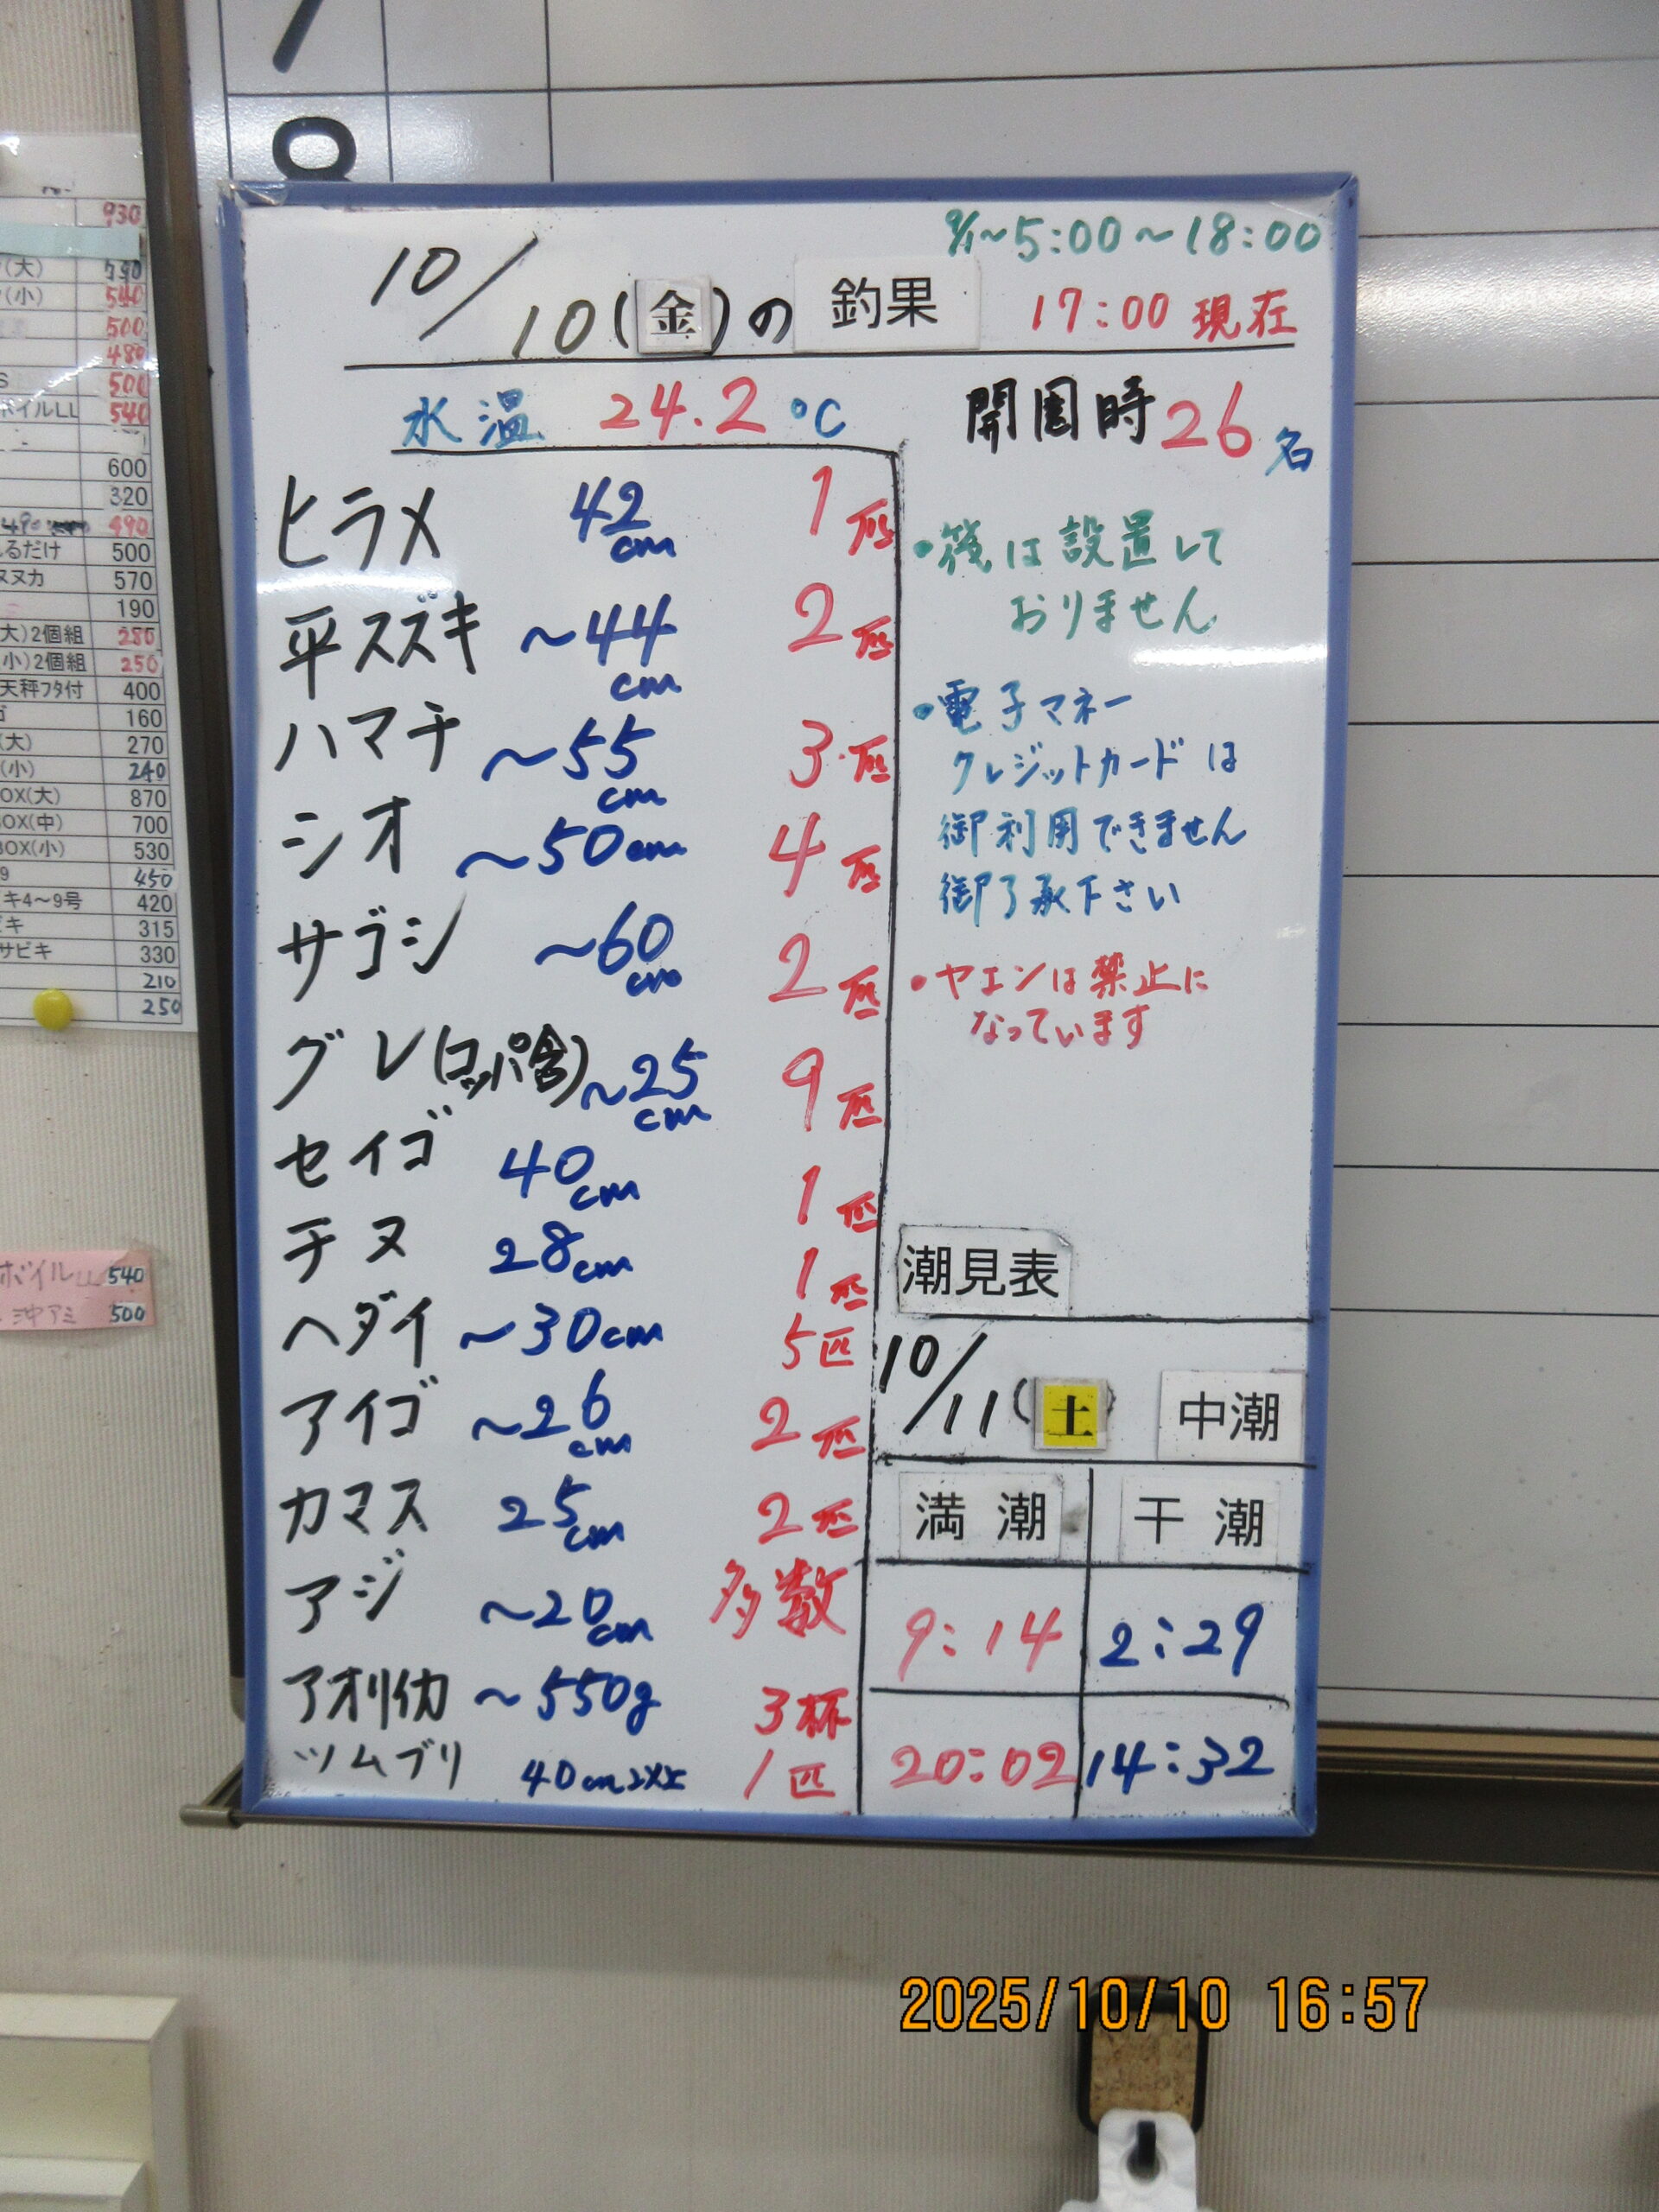 9/1～5:00～18:00
10/10(金)の 釣果 17:00 現在
水温 24.2℃ 開園時 26名
ヒラメ 42cm 1匹
平スズキ ～44cm 2匹
ハマチ ～55cm 3匹
シオ ～50cm 4匹
サゴシ ～60cm 2匹
グレ(コッパ含) ～25cm 9匹
セイゴ 40cm 1匹
チヌ 28cm 1匹
ヘダイ ～30cm 5匹
アイゴ ～26cm 2匹
カマス 25cm 2匹
アジ ～20cm 多数
アオリイカ ～550g 3杯
ツムブリ 40cm以上 1匹
・筏は設置して
おりません
・電子マネー
クレジットカードは
御利用できません
御了承下さい
・ヤエンは禁止に
なっています
潮見表
10/11(土) 中潮
満潮 干潮
9:14 2:29
20:02 14:32
930
(大)
(小) 540
500
480
500
ボイルLL 540
600
320
490
るだけ 500
ヌカ 570
190
大)2個組 280
小)2個組 250
天秤フタ付 400
160
(大) 270
(小) 240
OX(大) 870
OX(中) 700
BOX(小) 530
9 450
キ4～9号 420
ビキ 315
サビキ 330
210
250
ボイルLL 540
沖アミ 500
2025/10/10 16:57